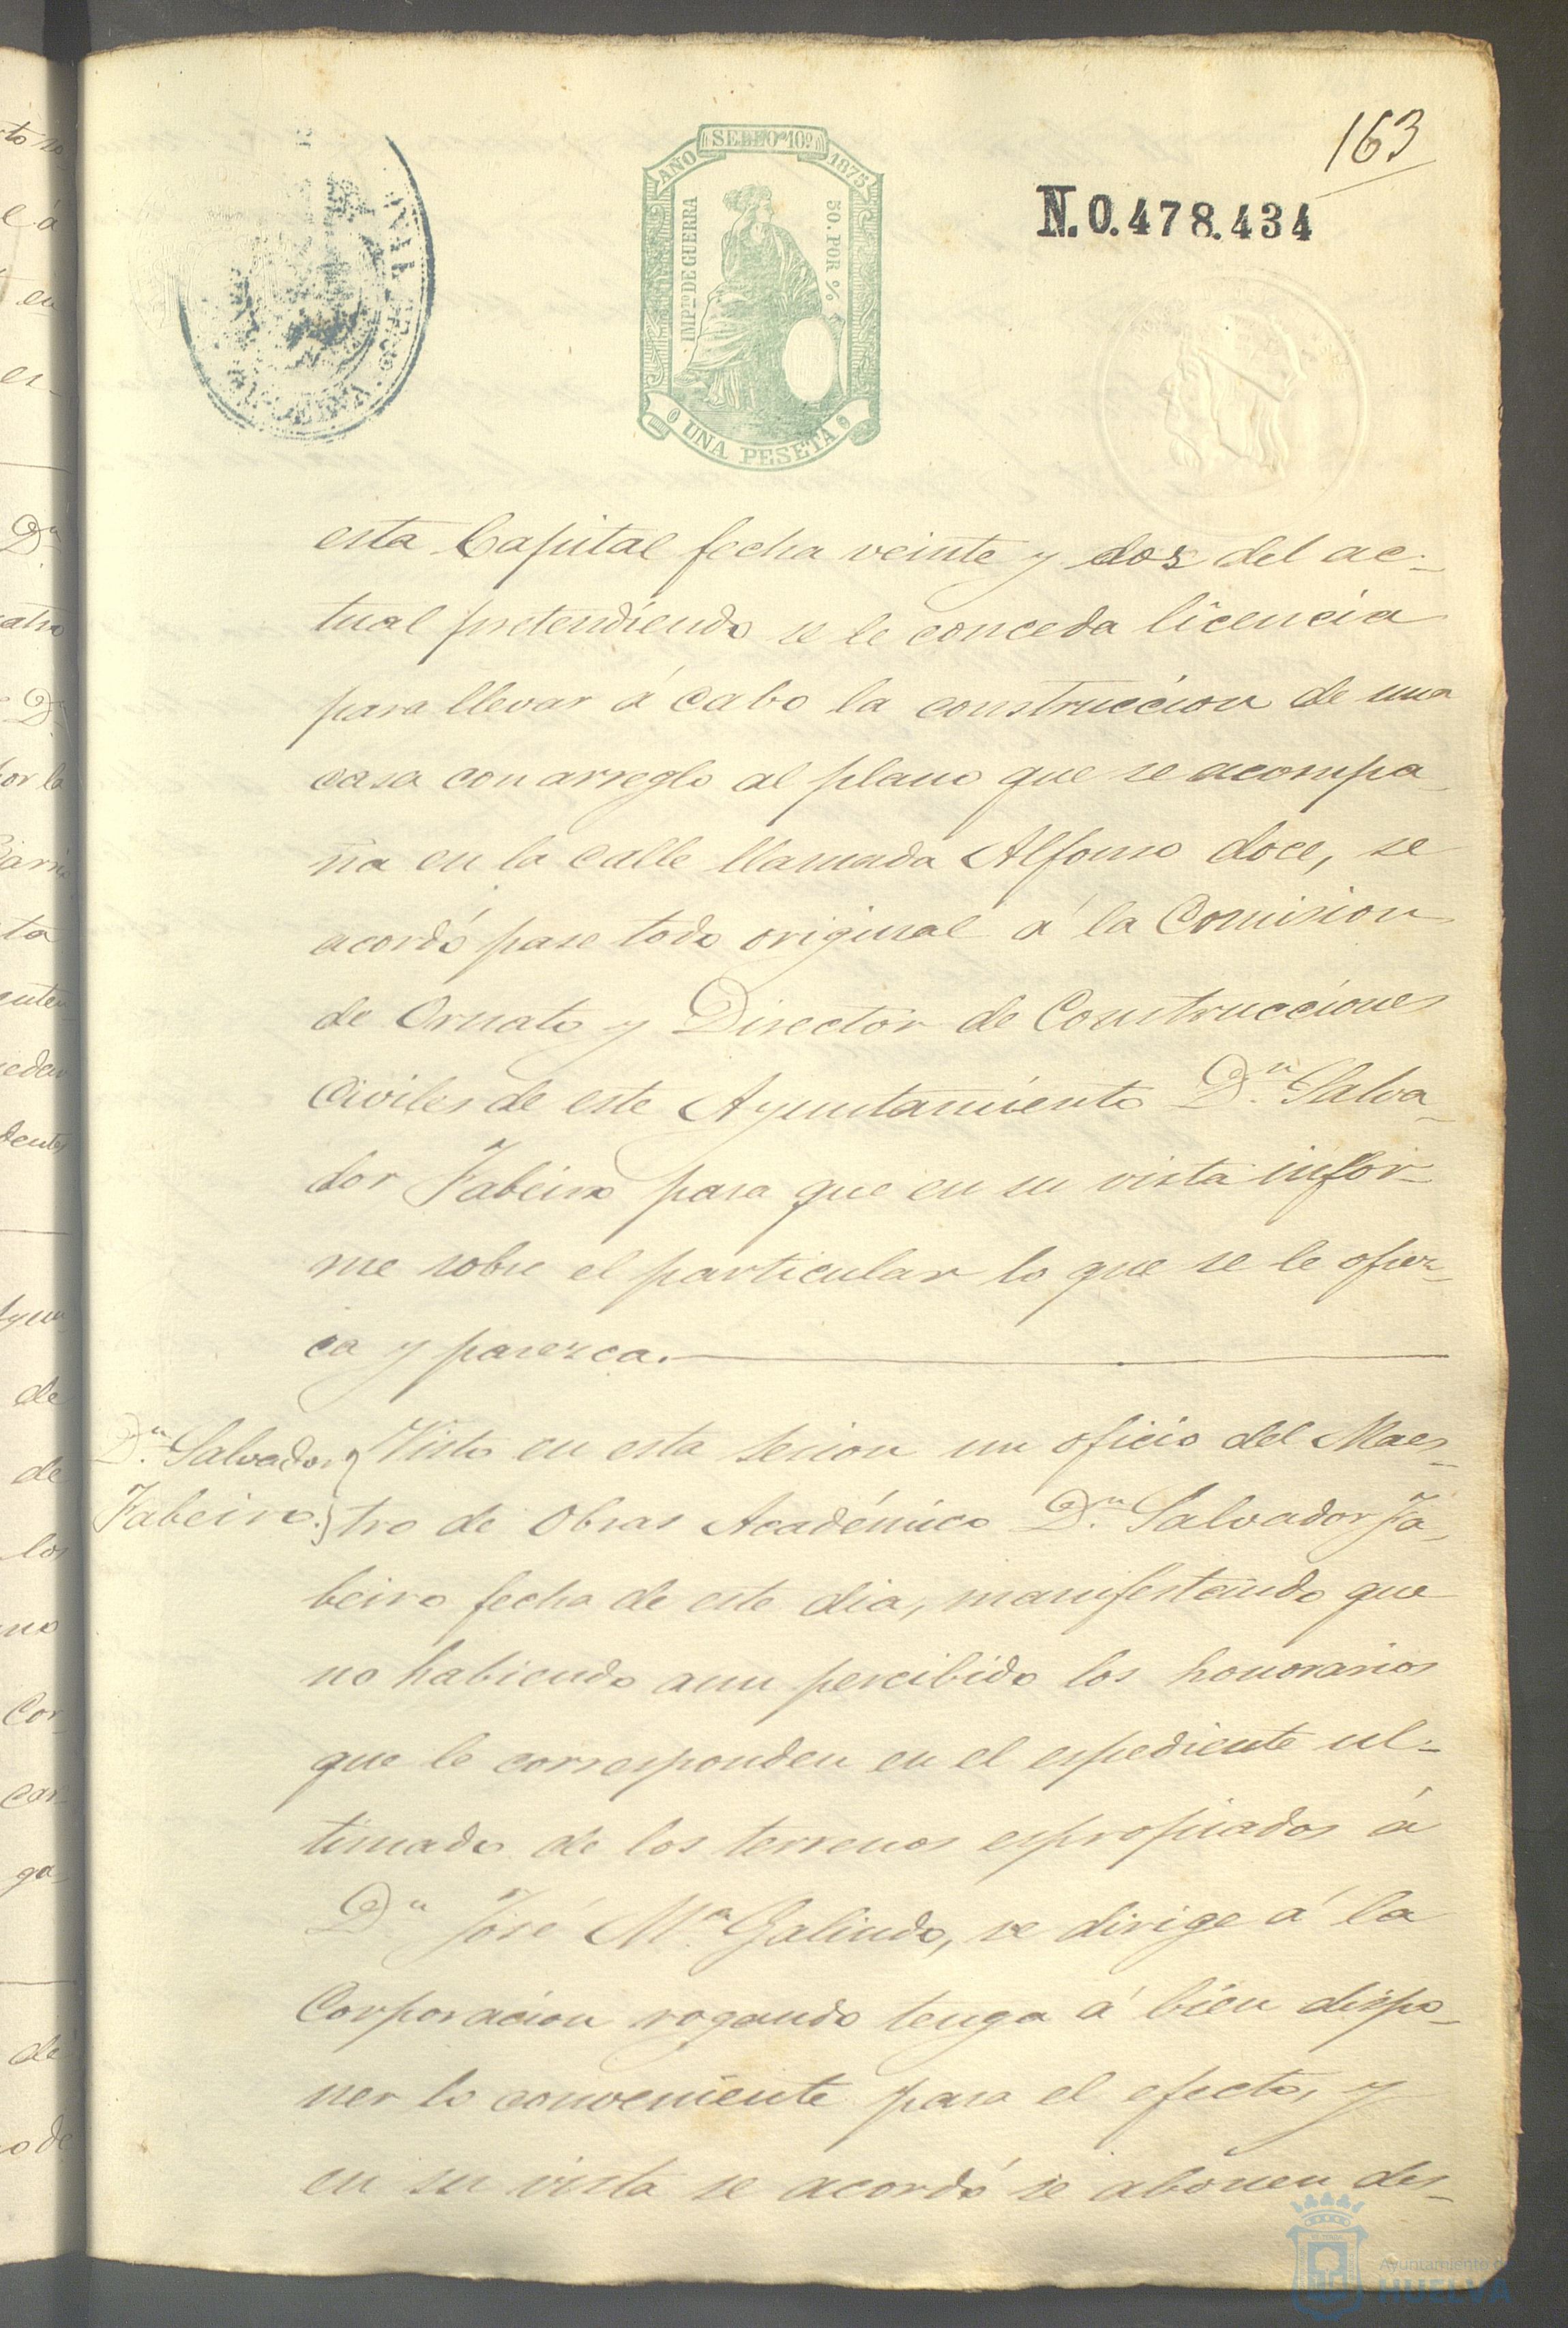 163
SELLO 10º
AÑO 1875
N.0.478.434
IMPto DE GUERRA
50. POR %
UNA PESETA
esta Capital fecha veinte y dos del ac-
tual pretendiendo se le conceda licencia
para llevar á cabo la construccion de una
casa con arreglo al plano que se acompa-
ña en la calle llamada Alfonso doce, se
acordó pase todo original á la Comision
de Ornato y Director de Construcciones
Civiles de este Ayuntamiento Dn. Salva-
dor Fabeiro para que en su vista infor-
me sobre el particular lo que se le ofrez-
ca y parezca.
Dn. Salvador
Fabeiro.
Visto en esta sesion un oficio del Maes-
tro de Obras Académico Dn. Salvador Fa-
beiro fecha de este dia, manifestando que
no habiendo aun percibido los honorarios
que le corresponden en el espediente ul-
timado de los terrenos espropiados á
Dn José Ma. Galindo, se dirige á la
Corporacion rogando tenga á bien dispo-
ner lo conveniente para el efecto, y
en su vista se acordó se abonen des-
Ayuntamiento de
HUELVA